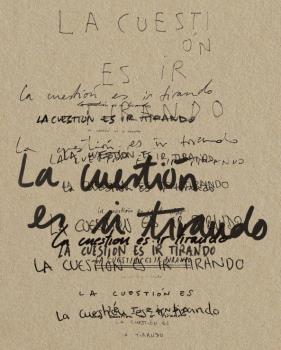 LA CUESTI
ÓN
ES IR
TIRANDO
La cuestión es ir tirando
LA CUESTIÓN ES IR TIRANDO
La cuestión es ir tirando
LA CUESTIÓN ES IR TIRANDO
La cuestión
es ir tirando
LA CUESTIÓN ES IR TIRANDO
La cuestión es ir tirando
LA CUESTIÓN ES IR TIRANDO
LA CUESTIÓN ES IR TIRANDO
LA CUESTIÓN ES
La cuestión
LA CUESTIÓN ES
IR TIRANDO